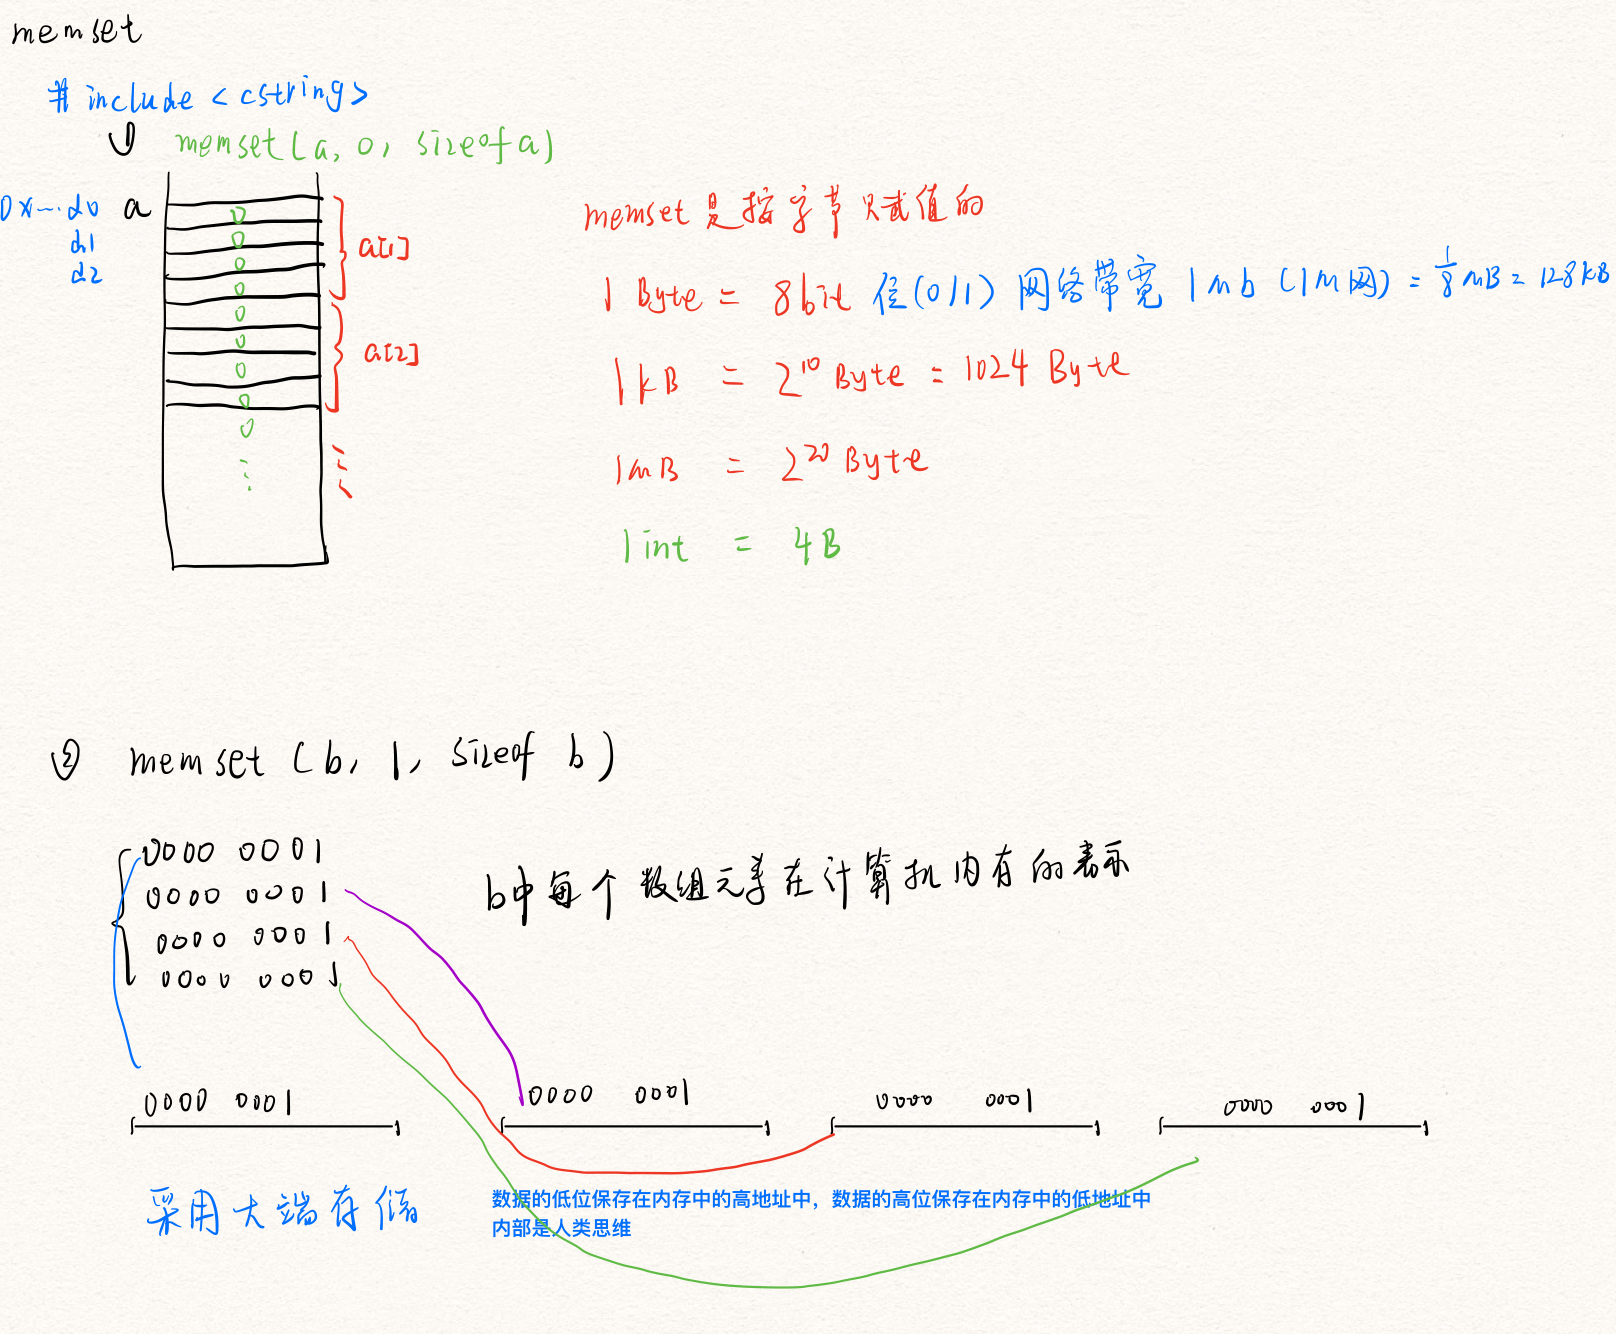 memset
#include <cstring>
① memset(a, 0, sizeof a)
0x...d0 a
d1
d2
0
0
0
0
0
0
0
0
0
⋮
a[1]
a[2]
⋮
memset是按字节赋值的
1 Byte = 8bit 位(0/1) 网络带宽 1mb (1M网) = 1/8 mB = 128kB
1kB = 2^10 Byte = 1024 Byte
1mB = 2^20 Byte
1int = 4B
② memset (b, 1, sizeof b)
0000 0001
0000 0001
0000 0001
0000 0001
b中每个数组元素在计算机内有的表示
0000 0001 0000 0001 0000 0001 0000 0001
采用大端存储
数据的低位保存在内存中的高地址中，数据的高位保存在内存中的低地址中
内部是人类思维